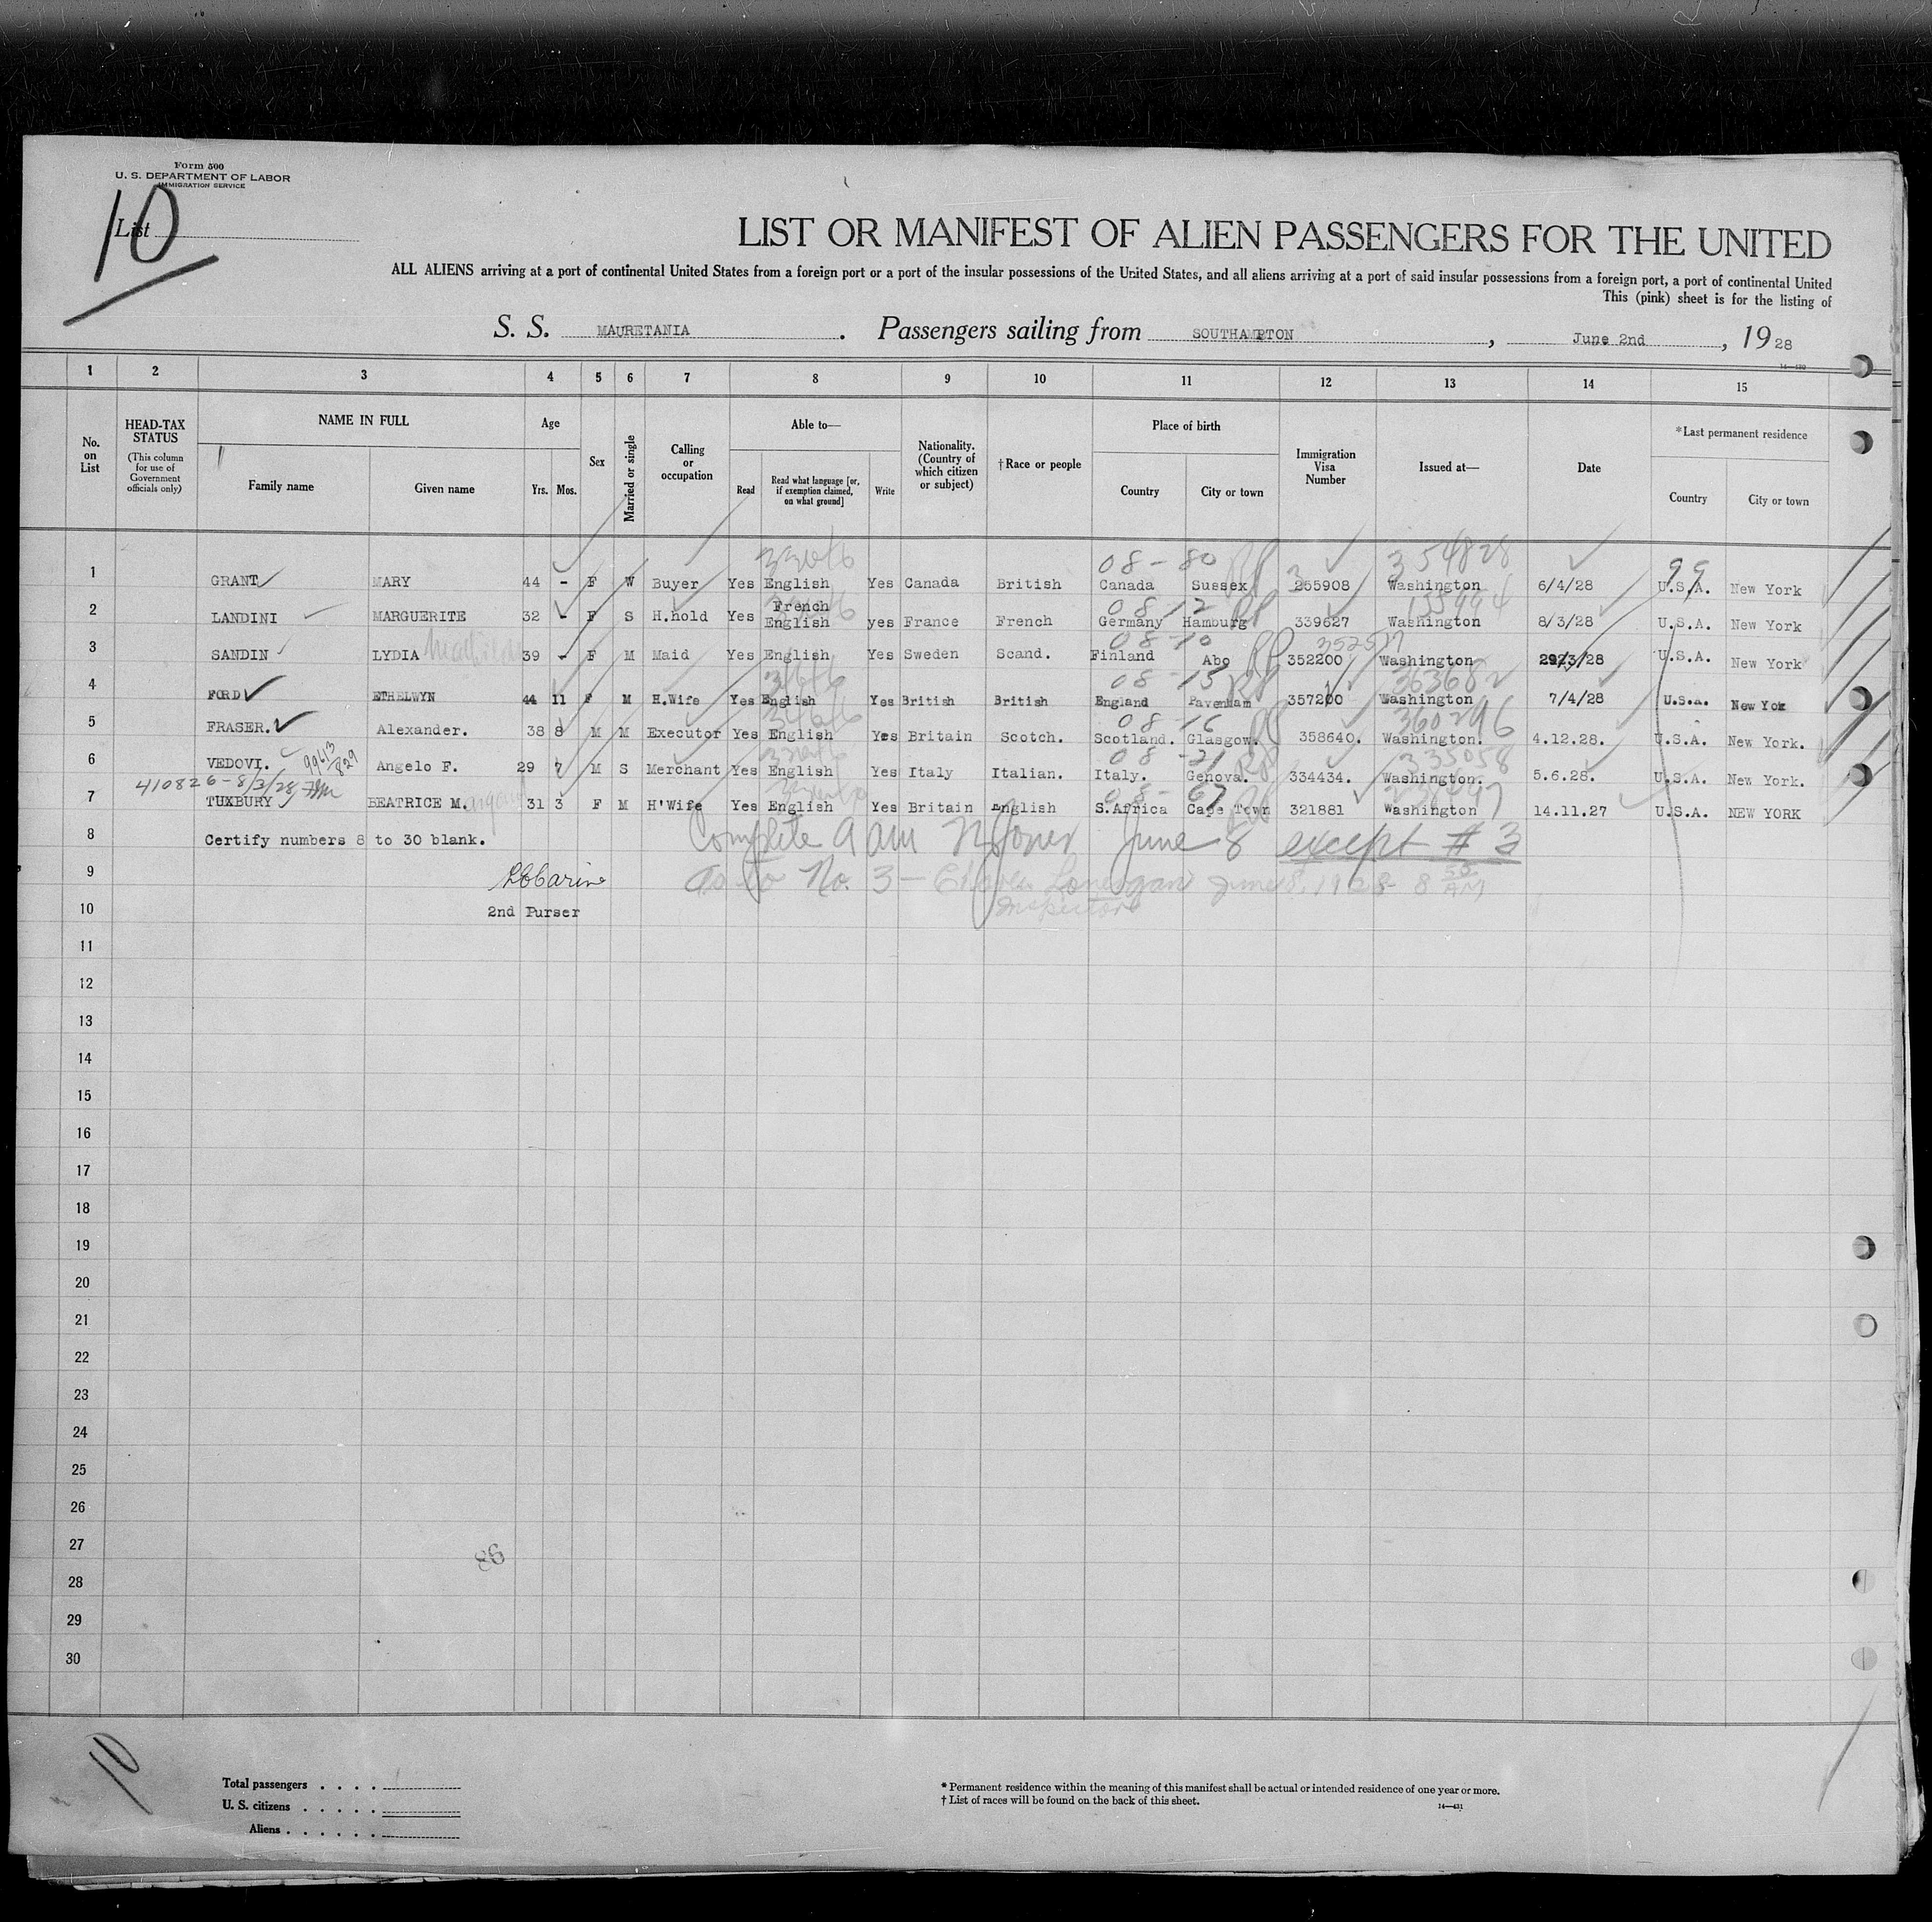 Form 500
U. S. DEPARTMENT OF LABOR
IMMIGRATION SERVICE
10
List
LIST OR MANIFEST OF ALIEN PASSENGERS FOR THE UNITED
ALL ALIENS arriving at a port of continental United States from a foreign port or a port of the insular possessions of the United States, and all aliens arriving at a port of said insular possessions from a foreign port, a port of continental United
This (pink) sheet is for the listing of
S. S. MAURETANIA. Passengers sailing from SOUTHAMPTON, June 2nd, 1928
14—430
1 2 3 4 5 6 7 8 9 10 11 12 13 14 15
No. on List
HEAD-TAX STATUS
(This column for use of Government officials only)
NAME IN FULL
Family name Given name
Age
Yrs. Mos.
Sex
Married or single
Calling or occupation
Able to—
Read Read what language [or, if exemption claimed, on what ground] Write
Nationality. (Country of which citizen or subject)
†Race or people
Place of birth
Country City or town
Immigration Visa Number
Issued at—
Date
*Last permanent residence
Country City or town
08-80 354828 99
1 GRANT MARY 44 - F W Buyer Yes English Yes Canada British Canada Sussex 255908 Washington 6/4/28 U.S.A. New York
08 12
2 LANDINI MARGUERITE 32 - F S H.hold Yes French English yes France French Germany Hamburg 339627 Washington 8/3/28 U.S.A. New York
08-10 352577
3 SANDIN LYDIA 39 - F M Maid Yes English Yes Sweden Scand. Finland Abo 352200 Washington 29/3/28 U.S.A. New York
08-15 363682
4 FORD ETHELWYN 44 11 F M H.Wife Yes English Yes British British England Pavenham 357200 Washington 7/4/28 U.S.a. New Yok
08-16 360296
5 FRASER. Alexander. 38 8 M M Executor Yes English Yes Britain Scotch. Scotland. Glasgow. 358640. Washington. 4.12.28. U.S.A. New York.
08-21 335058
6 VEDOVI. 99613 829 Angelo F. 29 7 M S Merchant Yes English Yes Italy Italian. Italy. Genova. 334434. Washington. 5.6.28. U.S.A. New York.
410826-8/3/28
08-67
7 TUXBURY BEATRICE M. 31 3 F M H'Wife Yes English Yes Britain English S.Africa Cape Town 321881 Washington 14.11.27 U.S.A. NEW YORK
8 Certify numbers 8 to 30 blank. Complete 9 am June 8 except # 3
9 As to No. 3 — Lonergan June 8, 1928 8 50 AM
Inspector
10 2nd Purser
11
12
13
14
15
16
17
18
19
20
21
22
23
24
25
26
27
86
28
29
30
10
Total passengers
U. S. citizens
Aliens
* Permanent residence within the meaning of this manifest shall be actual or intended residence of one year or more.
† List of races will be found on the back of this sheet.
14—431